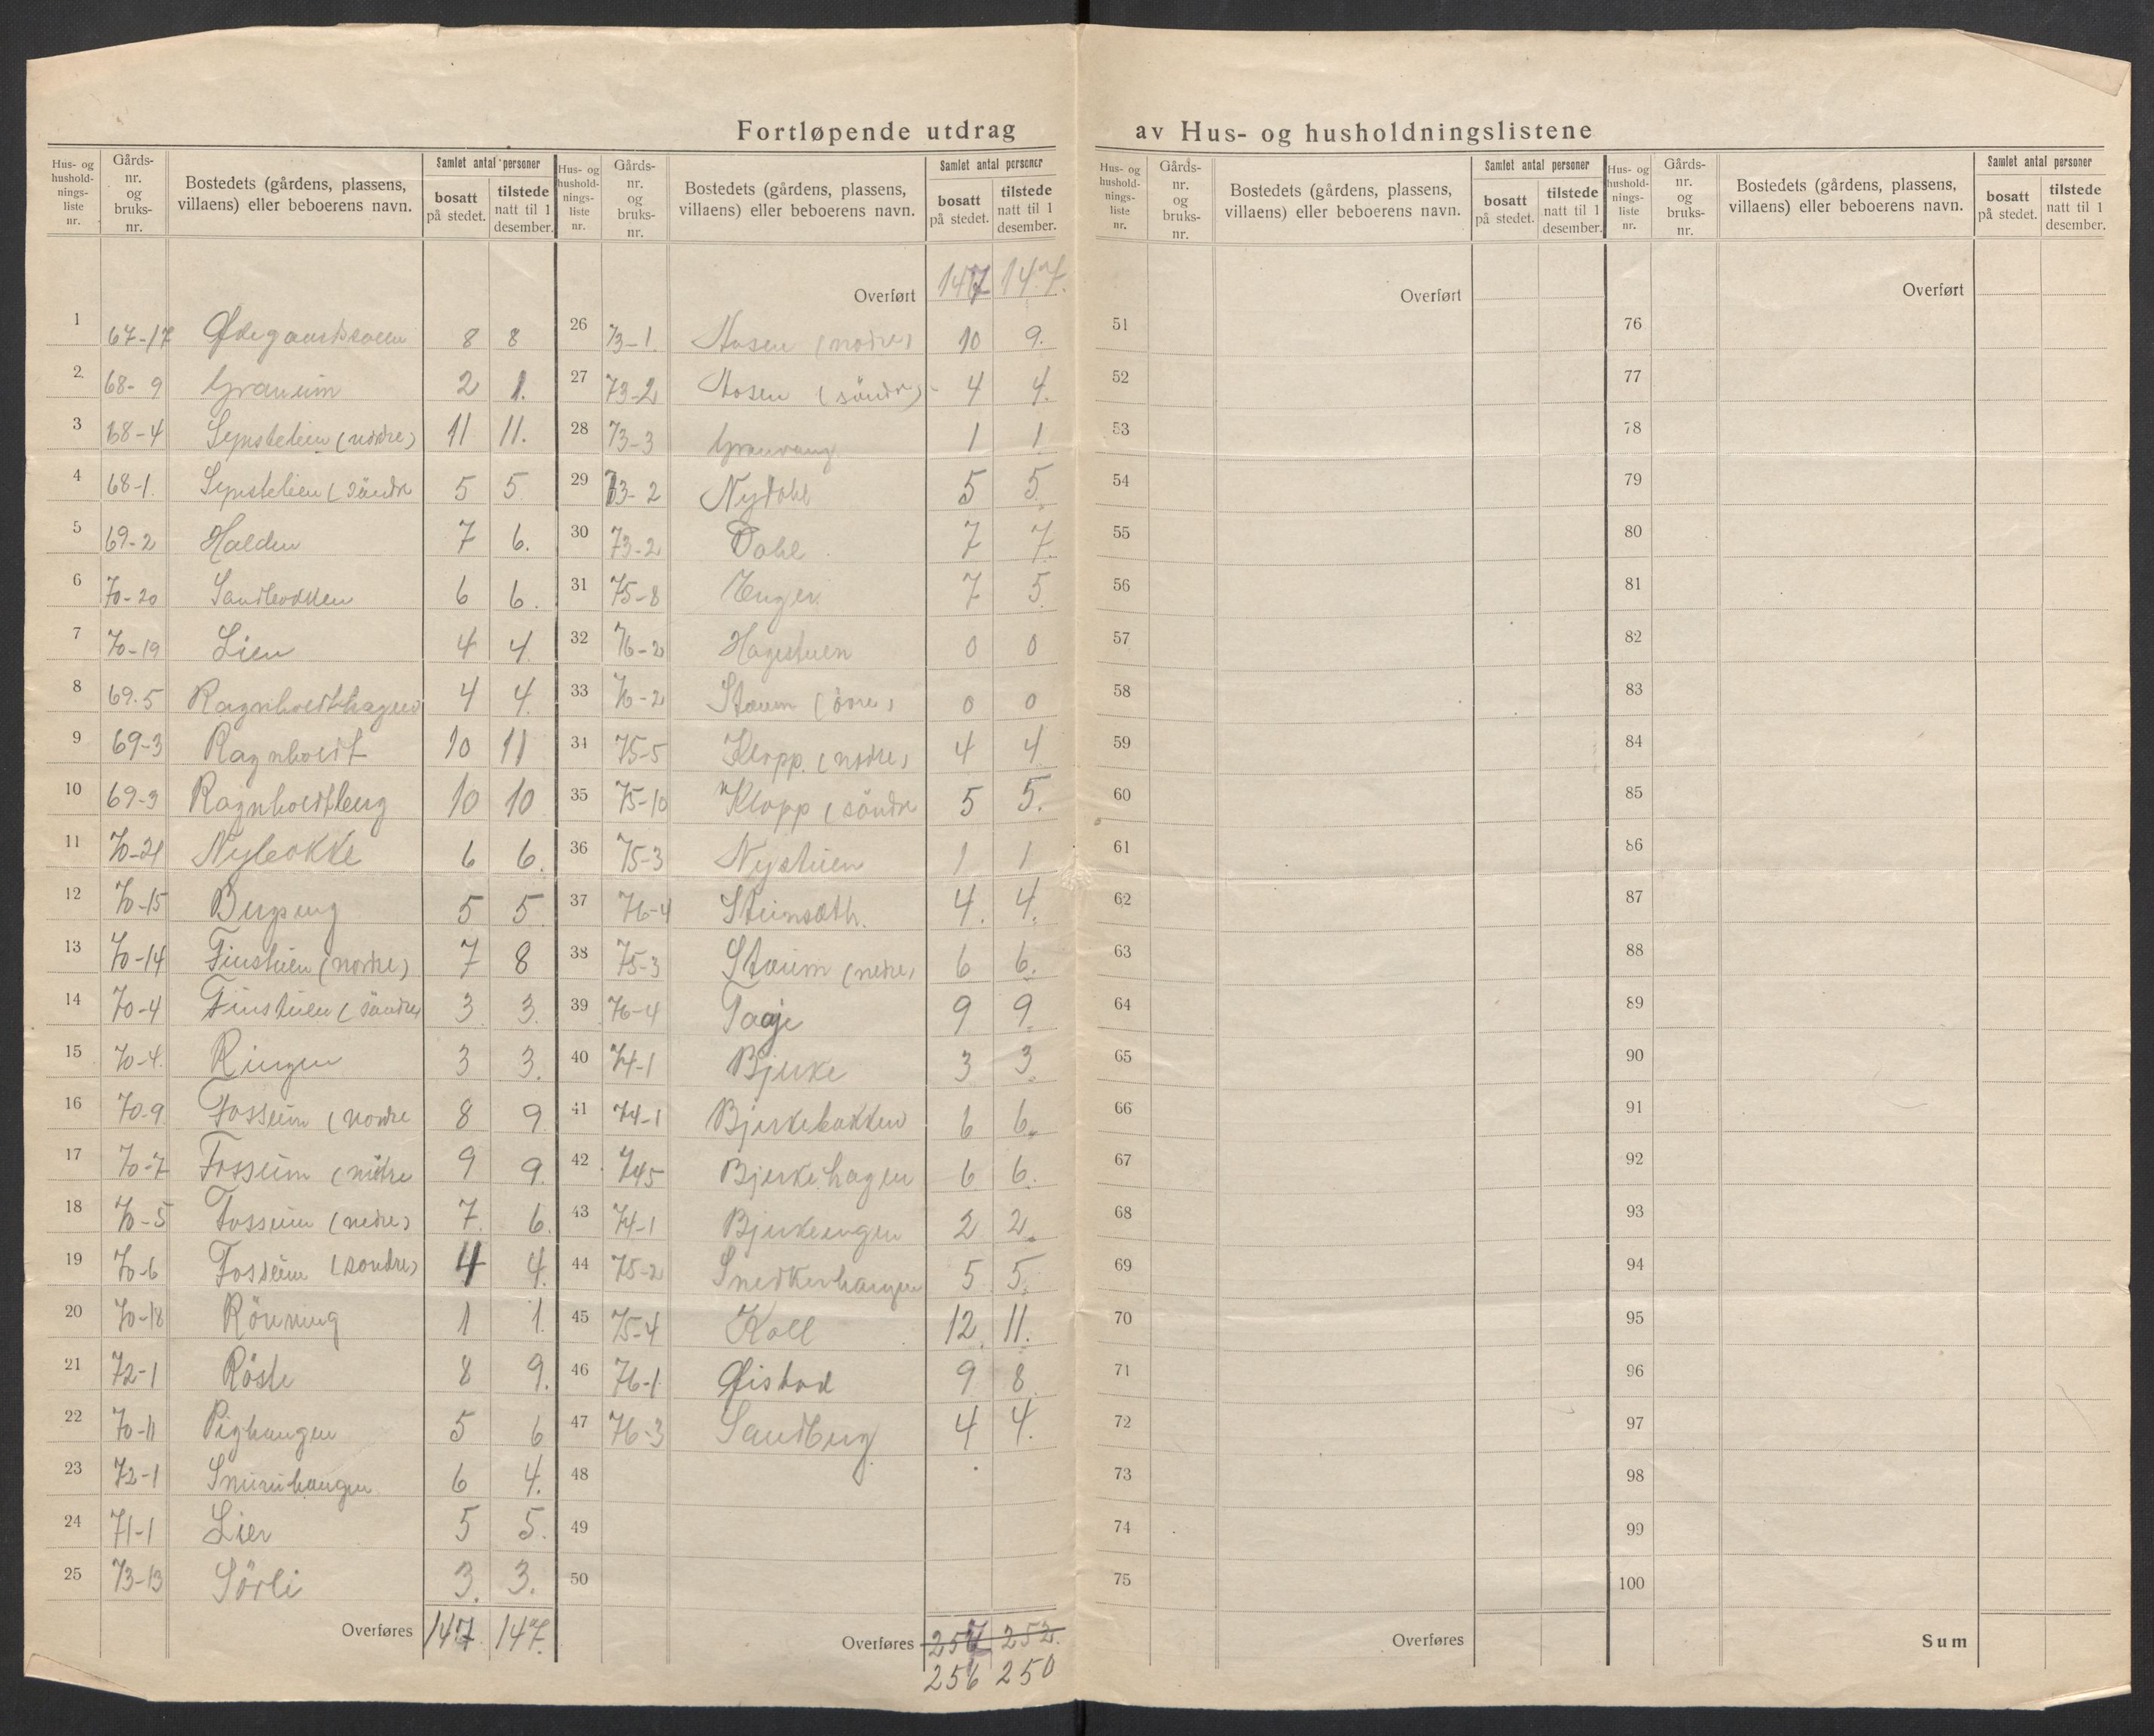 Fortløpende utdrag av Hus- og husholdningslistene
Hus- og hushold-nings-liste nr. | Gårds-nr. og bruks-nr. | Bostedets (gårdens, plassens, villaens) eller beboerens navn. | Samlet antal personer | bosatt på stedet. | tilstede natt til 1 desember.
1 67-17 8 8
2 68-9 Granum 2 1.
3 68-4 (nordre) 11 11.
4 68-1. (söndre 5 5
5 69-2 Halden 7 6.
6 70-20 Sandbakken 6 6.
7 70-19 Lien 4 4
8 69.5 Ragnholdthagen 4 4.
9 69-3 Ragnholdt 10 11
10 69-3 Ragnholdtberg 10 10
11 70-21 Nybakke 6 6.
12 70-15 Bergseng 5 5
13 70-14 Finstuen (nordre) 7 8
14 70-4 Finstuen (söndre) 3 3.
15 70-4. Ringen 3 3.
16 70-9 Fosseim (nordre 8 9
17 70-7 Fosseim (midtre 9 9.
18 70-5 Fosseim (nedre) 7. 6.
19 70-6 Fosseim (söndre) 4 4.
20 70-18 Rönning 1 1
21 72-1 Röste 8 9.
22 70-11 Pighaugen 5 6
23 72-1 6 4.
24 71-1 Lier 5 5.
25 73-13 Sörli 3. 3.
Overføres 147. 147.
Hus- og hushold-nings-liste nr. | Gårds-nr. og bruks-nr. | Bostedets (gårdens, plassens, villaens) eller beboerens navn. | Samlet antal personer | bosatt på stedet. | tilstede natt til 1 desember.
Overført 147 147.
26 73-1. Aasen (nordre) 10 9.
27 73-2 Aasen (söndre) 4 4.
28 73-3 Granvang 1 1
29 73-2 Nydahl 5 5.
30 73-2 Dahl 7 7.
31 75-8 Enger 7 5.
32 76-2 Hagestuen 0 0
33 76-2 Staum (övre) 0 0
34 75-5 Klopp. (nordre) 4 4
35 75-10 Klopp (söndre 5 5.
36 75-3 Nystuen 1 1
37 76-4 Steinsæth. 4. 4.
38 75-3 Staum (nedre) 6 6.
39 76-4 Taaje 9 9.
40 74-1 Bjerke 3 3.
41 74-1 Bjerkebakken 6 6.
42 745 Bjerkehagen 6 6.
43 74-1 Bjerkeengen 2 2.
44 75-2 Snedkerhaugen 5 5.
45 75-4 Koll 12. 11.
46 76-1 Øistad 9 8
47 76-3 Sandberg 4 4.
48
49
50
Overføres 257 252.
256 250
Hus- og hushold-nings-liste nr. | Gårds-nr. og bruks-nr. | Bostedets (gårdens, plassens, villaens) eller beboerens navn. | Samlet antal personer | bosatt på stedet. | tilstede natt til 1 desember.
Overført
51
52
53
54
55
56
57
58
59
60
61
62
63
64
65
66
67
68
69
70
71
72
73
74
75
Overføres
Hus- og hushold-nings-liste nr. | Gårds-nr. og bruks-nr. | Bostedets (gårdens, plassens, villaens) eller beboerens navn. | Samlet antal personer | bosatt på stedet. | tilstede natt til 1 desember.
Overført
76
77
78
79
80
81
82
83
84
85
86
87
88
89
90
91
92
93
94
95
96
97
98
99
100
Sum